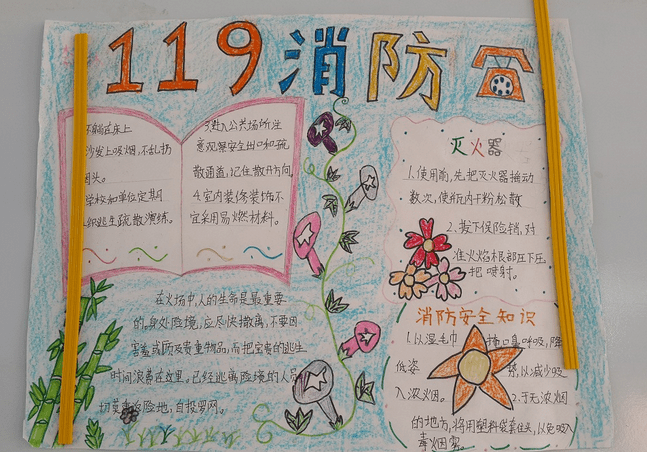 119消防
不躺在床上
沙发上吸烟,不乱扔
烟头。
学校和单位定期
组织逃生疏散演练。
3.进入公共场所注
意观察安全出口和疏
散通道,记住散开方向
4.室内装修装饰不
宜采用易燃材料。
灭火器
1.使用前,先把灭火器摇动
数次,使瓶内干粉松散
2.拔下保险销,对
准火焰根部压下压
把喷射。
在火场中,人的生命是最重要
的,身处险境,应尽快撤离,不要因
害羞或顾及贵重物品,而把宝贵的逃生
时间浪费在这里。已经逃离险境的人员
切莫重返险地,自投罗网。
消防安全知识
1.以湿毛巾掩口鼻呼吸,降
低姿势,以减少吸
入浓烟。
2.于无浓烟
的地方,将用塑料袋套住头,以免吸入
毒烟雾。